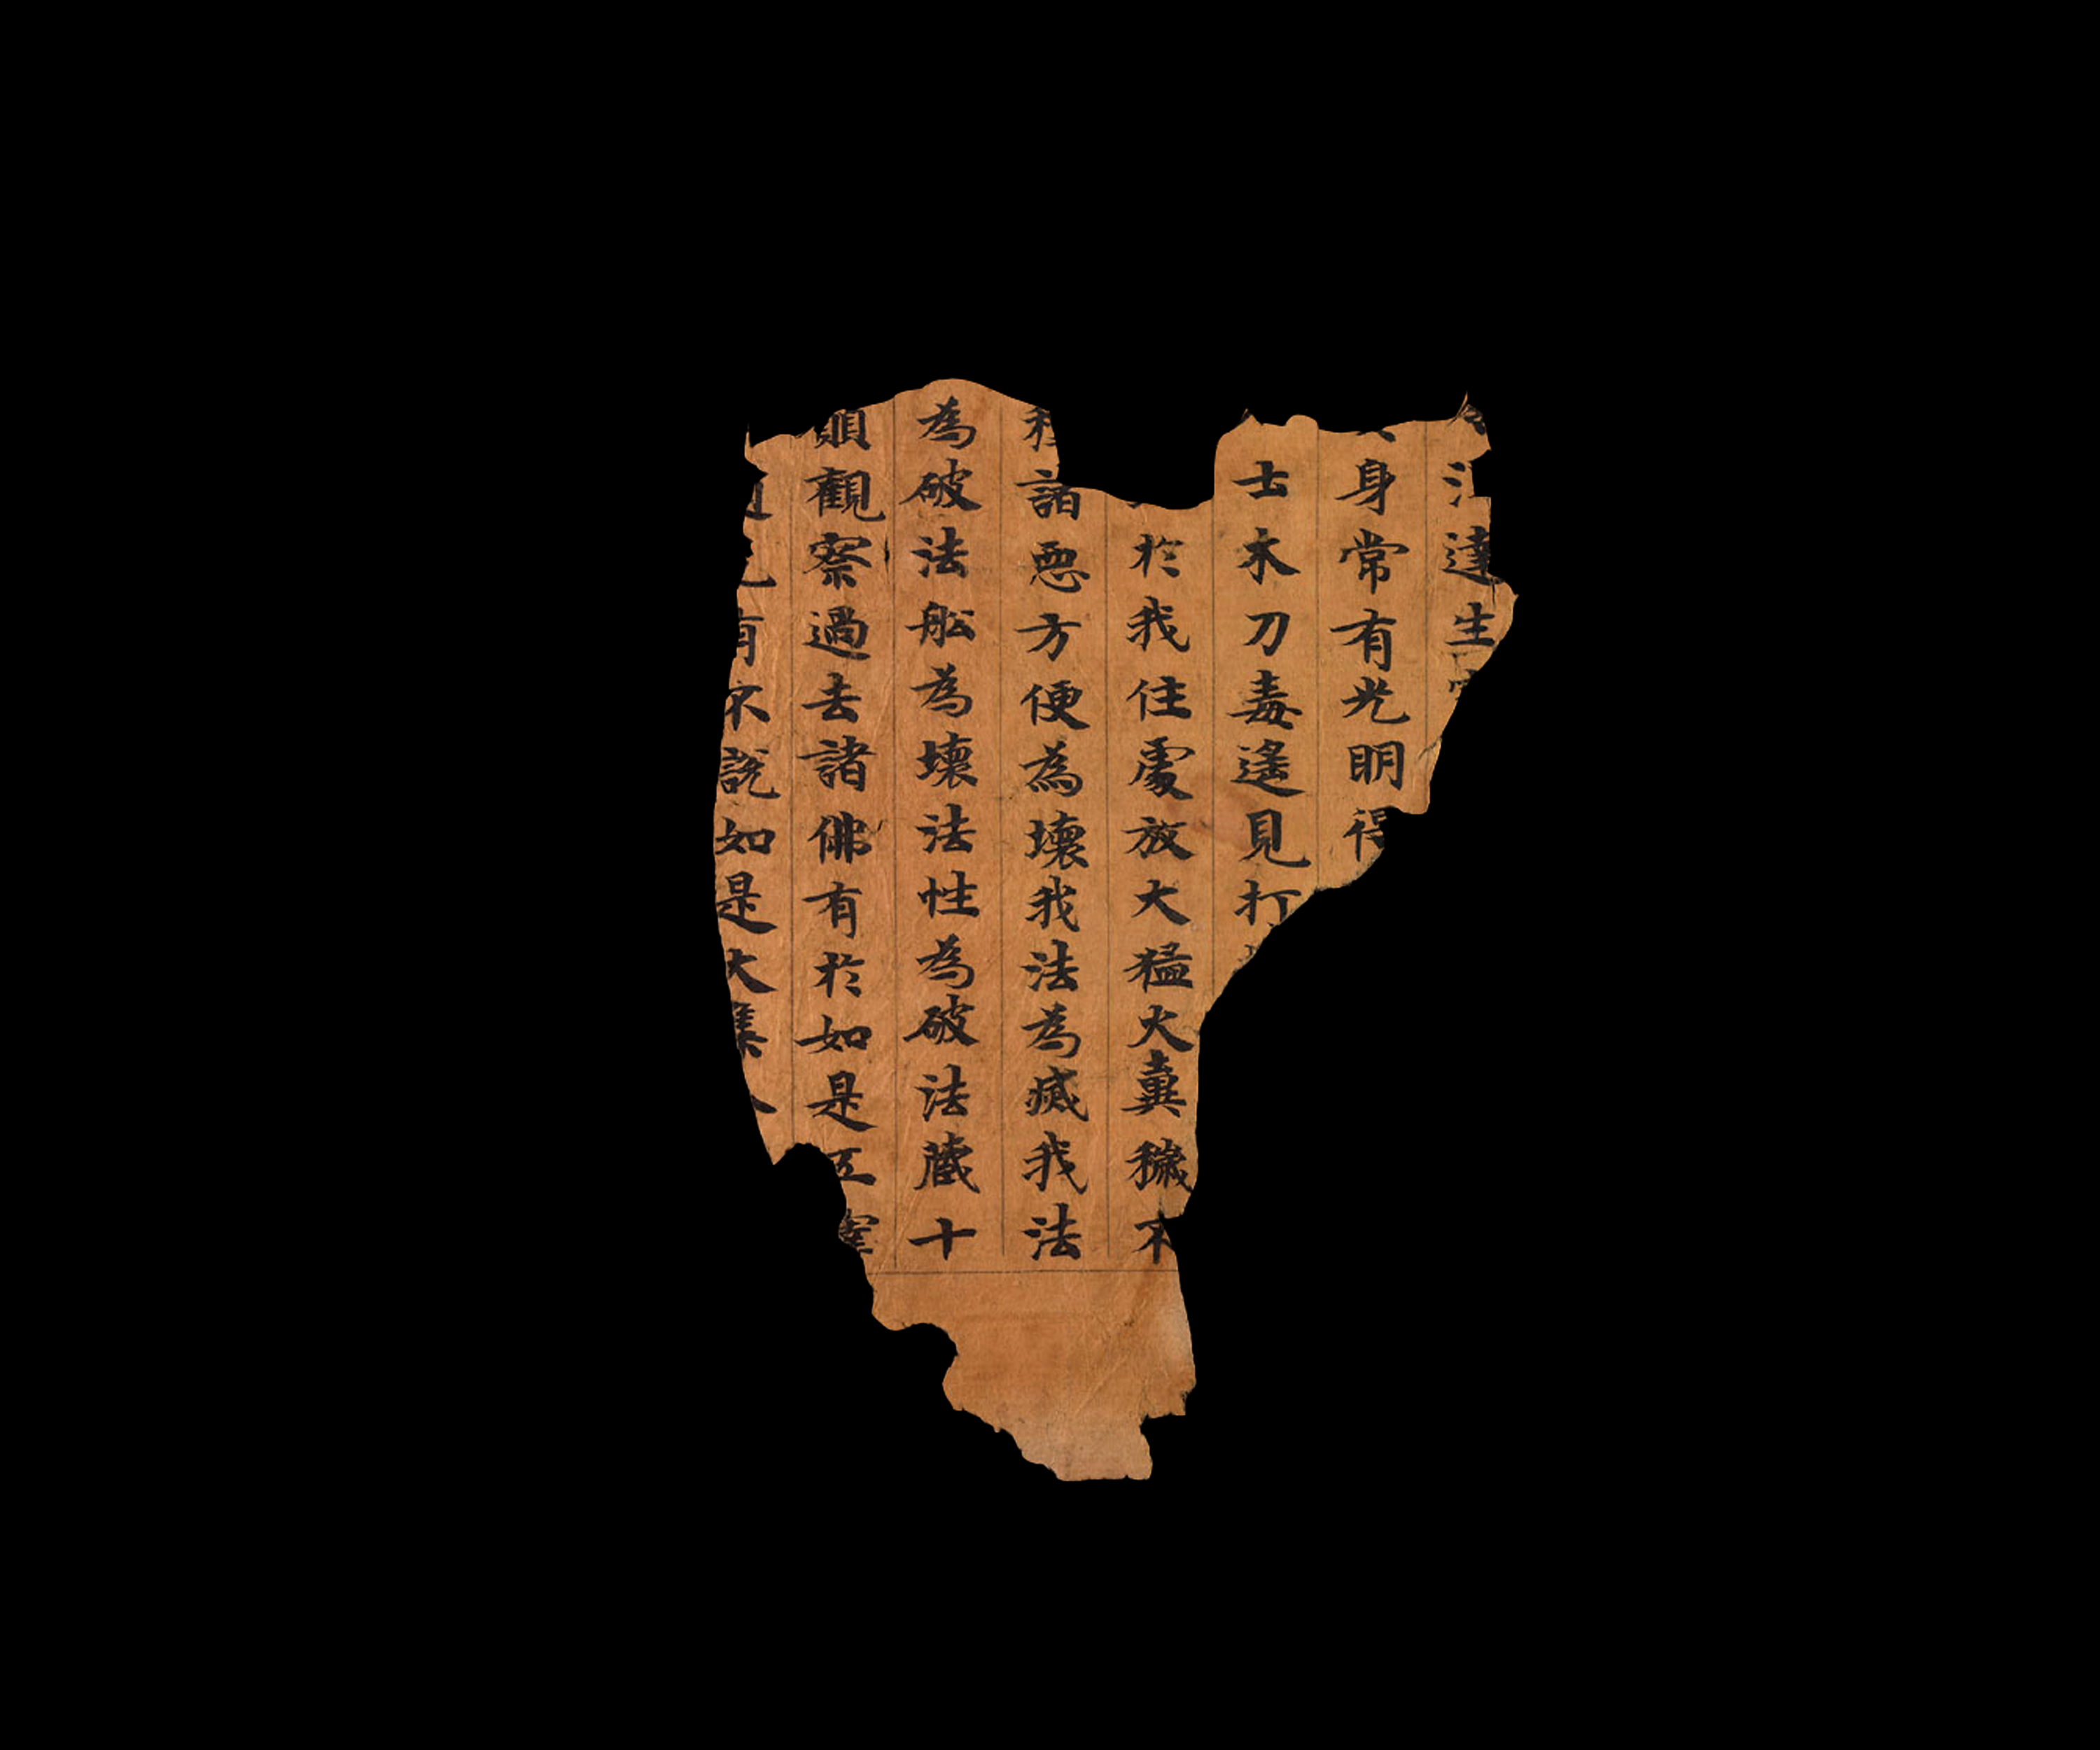 達生
身常有光明得
士木刀毒遙見打
於我住處放大猛火糞穢不
種諸惡方便為壞我法為滅我法
為破法船為壞法性為破法藏十
願觀察過去諸佛有於如是五濁
有不說如是大集